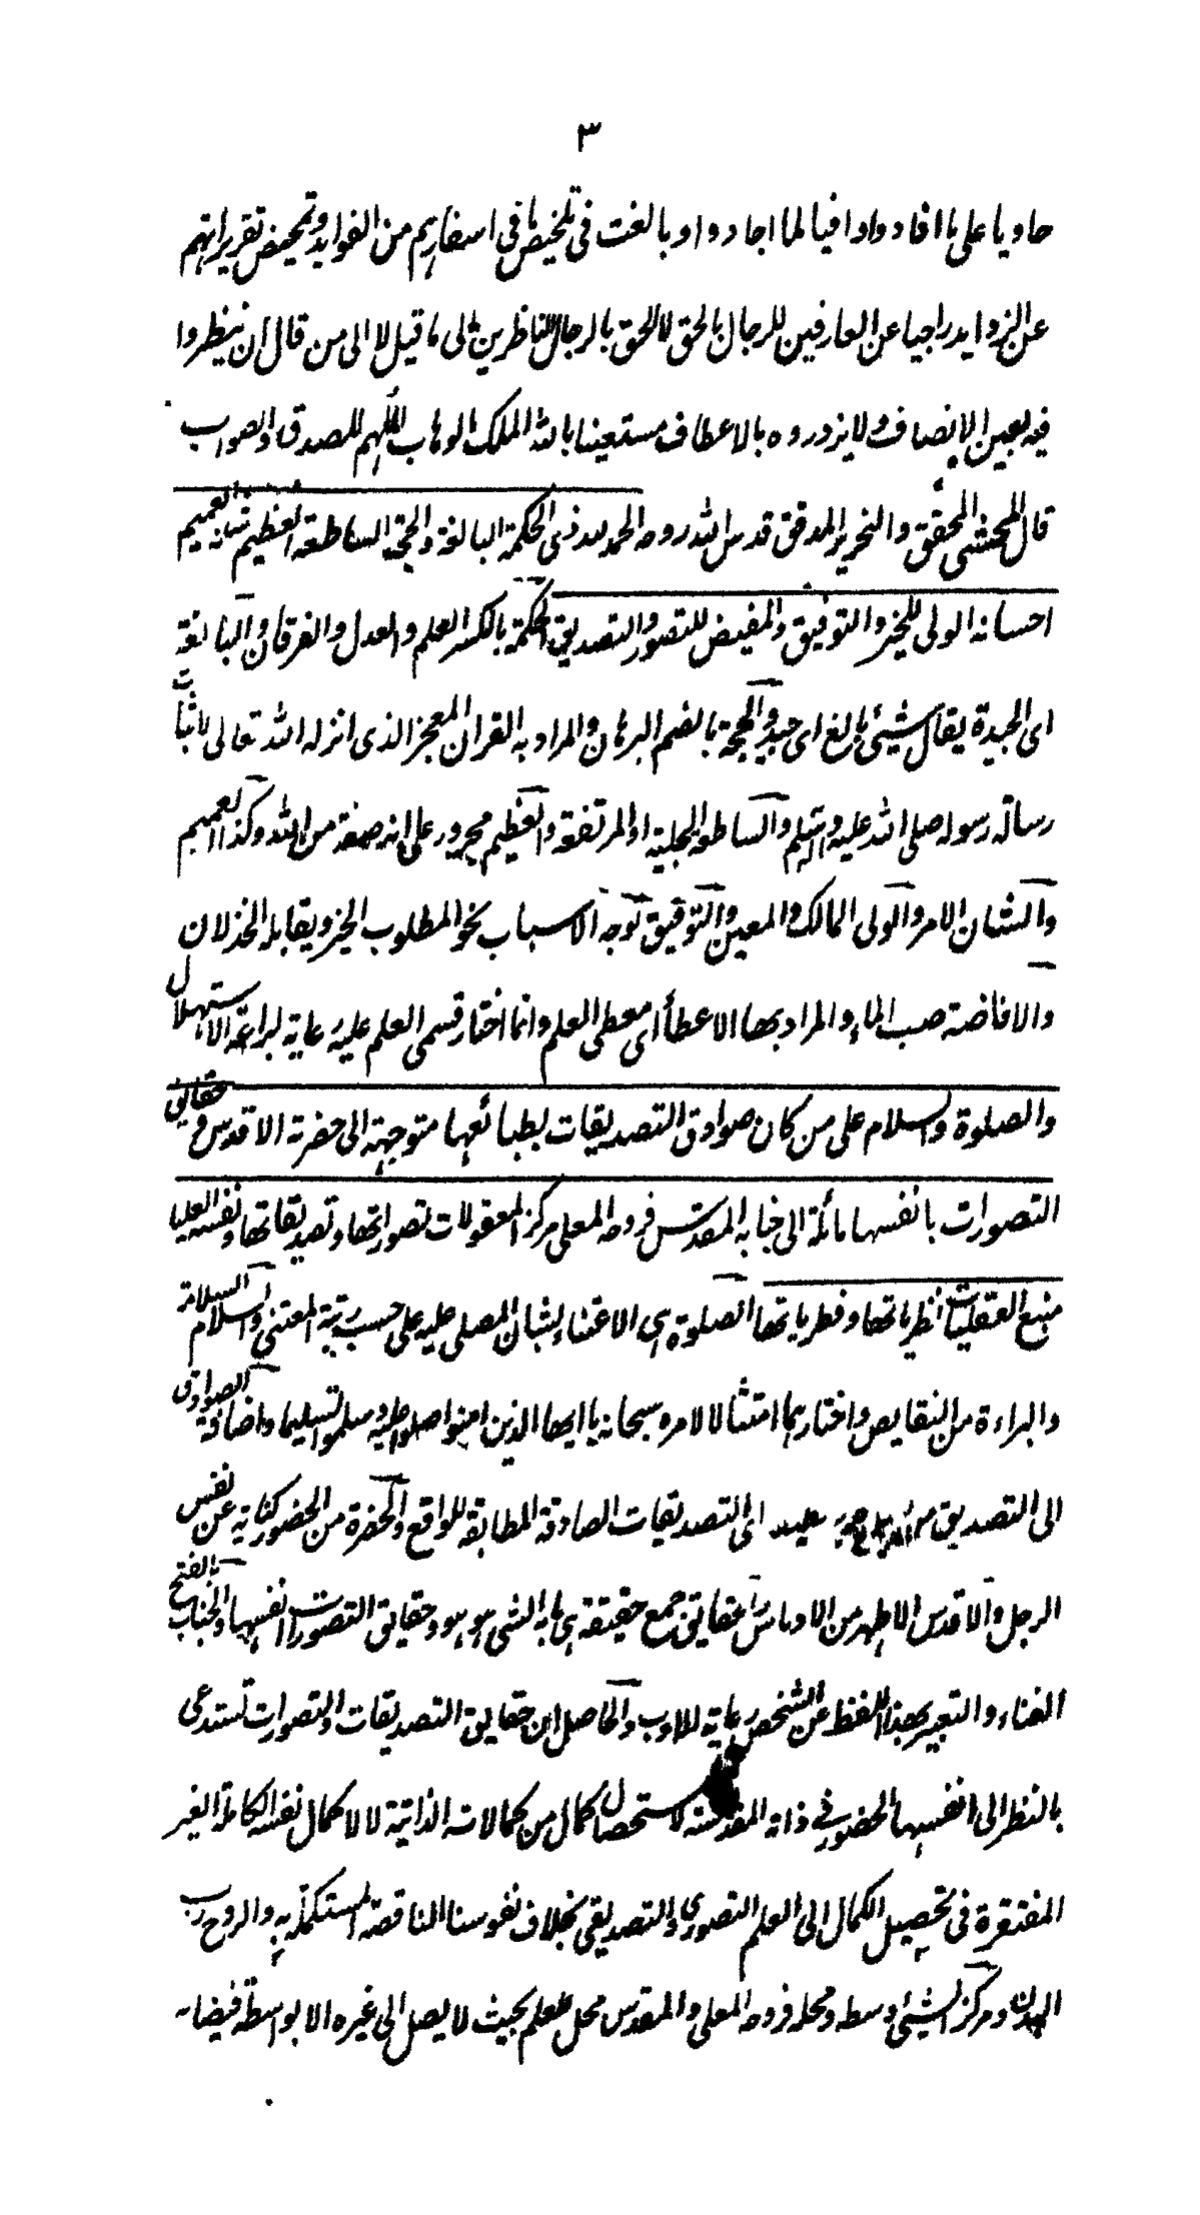 ٣
حاويا على ما افادوا وافيا لما اجادوا وبالغت في تلخيص ما في اسفارهم من الفوايد وتمحيض تقريراتهم
عن الزوايد راجيا عن العارفين للرجال بالحق لا للحق بالرجال الناظرين الى ما قيل لا الى من قال ان ينظروا
فيه بعين الانصاف ولا يزدروه بالاعطاف مستعينا بالله الملك الوهاب اللهم للصدق والصواب
قال المحشى المحقق والنحرير المدقق قدس الله روحه الحمد لله ذى الحكمة البالغة والحجة الساطعة العظيم شانه العميم
احسانه الولى للخير والتوفيق والمفيض للتصور والتصديق الحكمة بالكسر العلم والعدل والفرقان والبالغة
اى الجيدة يقال شيئ بالغ اى جيد والحجة بالضم البرهان والمراد به القران المعجز الذى انزله الله تعالى لاثبات
رسالة رسوله صلى الله عليه واله وسلم والساطعة الجلية او المرتفعة والعظيم مجرور على انه صفة من الله وكذا العميم
والشان الامر والولى المالك والمعين والتوفيق توجه الاسباب نحو المطلوب الخير ويقابله الخذلان
والافاضة صب الماء والمراد بها الاعطاء اى معطى العلم وانما اختار قسمى العلم عليه رعاية لبراعة الاستهلال
والصلوة والسلام على من كان صوادق التصديقات بطبائعها متوجهة الى حضرته الاقدس وحقايق
التصورات بانفسها مائلة الى جنابه المقدس فروحه المعلى مركز المعقولات تصوراتها وتصديقاتها ونفسه العليا
منبع العقليات نظرياتها وفطرياتها الصلوة هى الاعتناء بشان المصلى عليه على حسب رتبة المعتنى والسلام السلامة
والبراءة من النقايص واختارهما امتثالا لامره سبحانه يا ايها الذين امنوا صلوا عليه وسلموا تسليما واضافة الصوادق
الى التصديق من اى التصديقات الصادقة المطابقة للواقع والحضرة من الحضور كناية عن نفس
الرجل والاقدس الاطهر من الادناس والحقايق جمع حقيقة هى ما به الشى هو هو وحقايق التصورات انفسها والجناب بالفتح
الفناء والتعبير بهذا اللفظ عن الشخص رعاية للادب والحاصل ان حقايق التصديقات والتصورات تستدعى
بالنظر الى انفسها الحضور فى ذاته المقدسة لاستحصال كمال من كمالاته الذاتية لا لاكمال نفسه الكاملة الغير
المفتقرة فى تحصيل الكمال الى العلم التصورى والتصديقى بخلاف نفوسنا الناقصة المستكملة به والروح رب
البدن ومركز الشيئ وسطه ومحله فروحه المعلى والمقدس محل للعلم بحيث لا يصل الى غيره الا بواسطة فيضانه